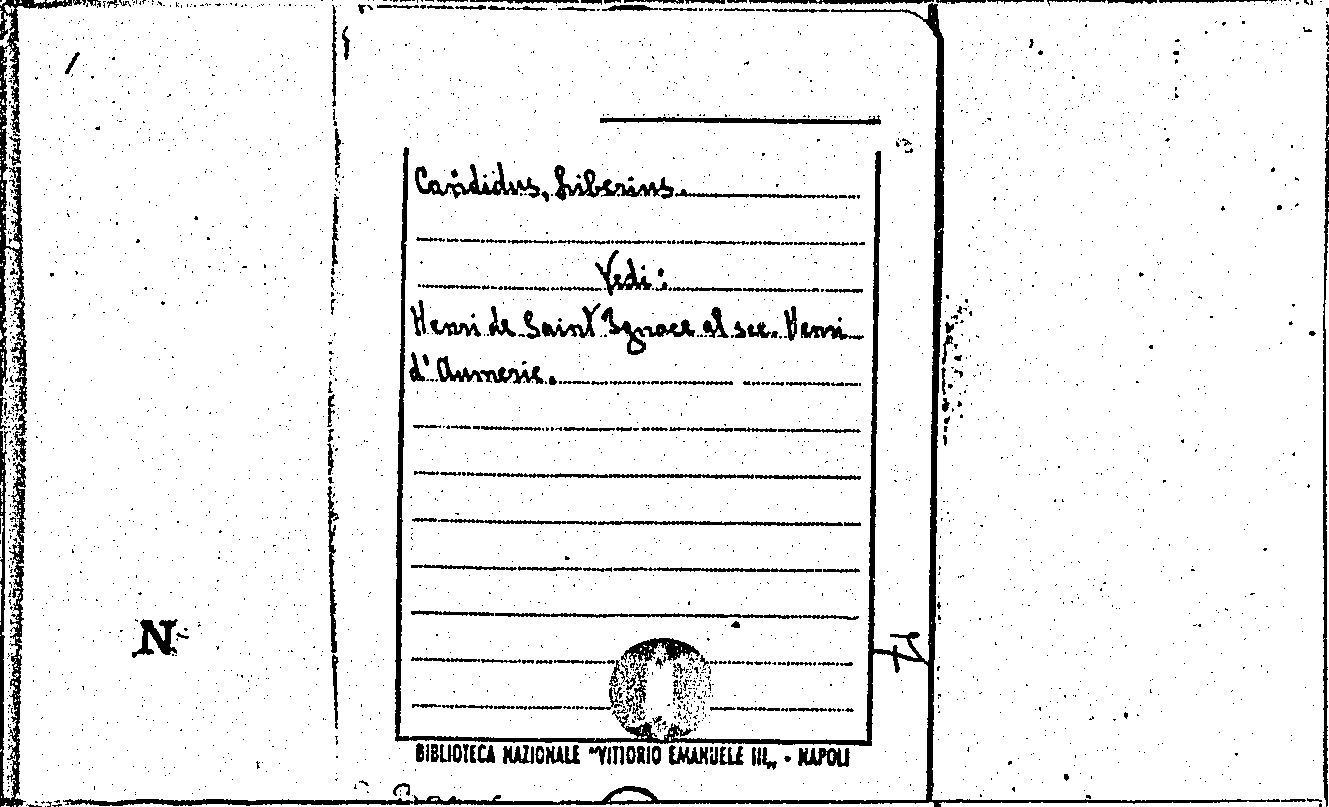 Candidus, Liberius.
Vedi:
Henri de Saint Ignace al sec. Henri
d'Aumerie.
N
BIBLIOTECA NAZIONALE "VITTORIO EMANUELE III„ - NAPOLI